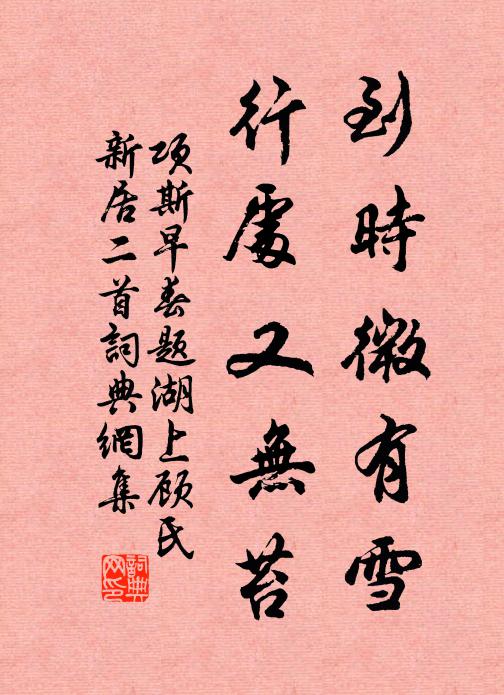 到時微有雪
行處又無苔
項斯早春題湖上顧氏
新居二首詞典網集
詞典
网印